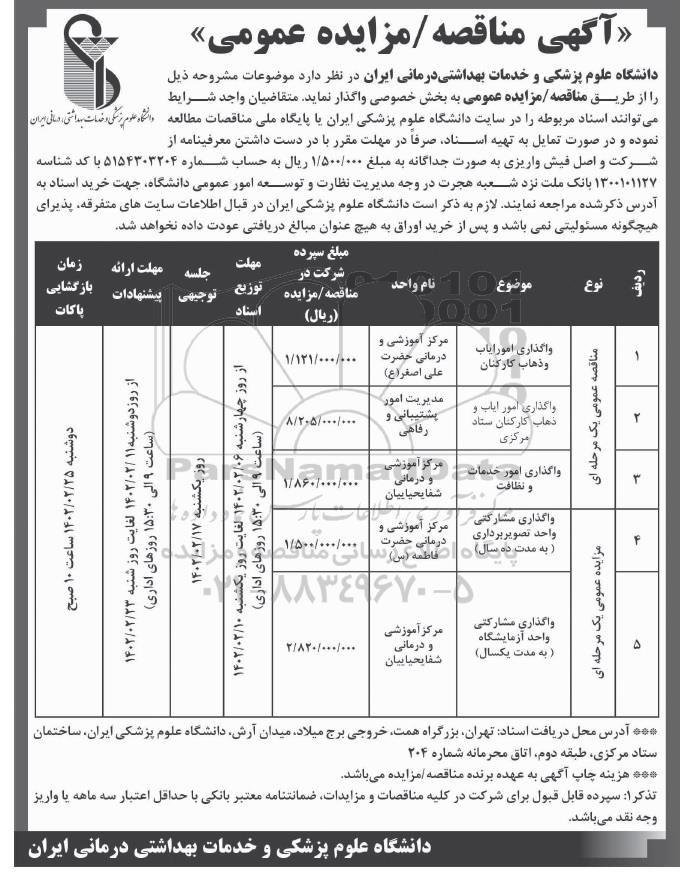 «آگهی مناقصه/مزایده عمومی»
دانشگاه علوم پزشکی و خدمات بهداشتی، درمانی ایران
دانشگاه علوم پزشکی و خدمات بهداشتی‌درمانی ایران در نظر دارد موضوعات مشروحه ذیل
را از طریق مناقصه/مزایده عمومی به بخش خصوصی واگذار نماید. متقاضیان واجد شرایط
می‌توانند اسناد مربوطه را در سایت دانشگاه علوم پزشکی ایران یا پایگاه ملی مناقصات مطالعه
نموده و در صورت تمایل به تهیه اسناد، صرفاً در مهلت مقرر با در دست داشتن معرفینامه از
شرکت و اصل فیش واریزی به صورت جداگانه به مبلغ ۱/۵۰۰/۰۰۰ ریال به حساب شماره ۵۱۵۴۳۰۳۲۰۴ با کد شناسه
۱۳۰۰۱۰۱۱۲۷ بانک ملت نزد شعبه هجرت در وجه مدیریت نظارت و توسعه امور عمومی دانشگاه، جهت خرید اسناد به
آدرس ذکرشده مراجعه نمایند. لازم به ذکر است دانشگاه علوم پزشکی ایران در قبال اطلاعات سایت های متفرقه، پذیرای
هیچگونه مسئولیتی نمی باشد و پس از خرید اوراق به هیچ عنوان مبالغ دریافتی عودت داده نخواهد شد.
ردیف
نوع
موضوع
نام واحد
مبلغ سپرده
شرکت در
مناقصه/مزایده
(ریال)
مهلت
توزیع
اسناد
جلسه
توجیهی
مهلت ارائه
پیشنهادات
زمان
بازگشایی
پاکات
۱
مناقصه عمومی یک مرحله ای
واگذاری امورایاب
وذهاب کارکنان
مرکز آموزشی و
درمانی حضرت
علی اصغر(ع)
۱/۱۲۱/۰۰۰/۰۰۰
از روز چهارشنبه ۱۴۰۲/۰۲/۰۶ لغایت روز یکشنبه ۱۴۰۲/۰۲/۱۰
(ساعت ۹ الی ۱۵:۳۰ روزهای اداری)
روز یکشنبه ۱۴۰۲/۰۲/۱۷
از روزدوشنبه ۱۴۰۲/۰۲/۱۱ لغایت روز شنبه ۱۴۰۲/۰۲/۲۳
(ساعت ۹ الی ۱۵:۳۰ روزهای اداری)
دوشنبه ۱۴۰۲/۰۲/۲۵ ساعت ۱۰ صبح
۲
واگذاری امور ایاب و
ذهاب کارکنان ستاد
مرکزی
مدیریت امور
پشتیبانی و
رفاهی
۸/۲۰۵/۰۰۰/۰۰۰
۳
واگذاری امور خدمات
و نظافت
مرکزآموزشی
و درمانی
شفایحیاییان
۱/۸۶۰/۰۰۰/۰۰۰
۴
مزایده عمومی یک مرحله ای
واگذاری مشارکتی
واحد تصویربرداری
( به مدت ده سال)
مرکز آموزشی و
درمانی حضرت
فاطمه (س)
۱/۵۰۰/۰۰۰/۰۰۰
۵
واگذاری مشارکتی
واحد آزمایشگاه
( به مدت یکسال)
مرکزآموزشی
و درمانی
شفایحیاییان
۲/۸۲۰/۰۰۰/۰۰۰
ParsNamadData
پایگاه اطلاع رسانی مناقصه و مزایده
۰۲۱-۸۸۳۴۹۶۷۰-۵
*** آدرس محل دریافت اسناد: تهران، بزرگراه همت، خروجی برج میلاد، میدان آرش، دانشگاه علوم پزشکی ایران، ساختمان
ستاد مرکزی، طبقه دوم، اتاق محرمانه شماره ۲۰۴
*** هزینه چاپ آگهی به عهده برنده مناقصه/مزایده می‌باشد.
تذکر۱: سپرده قابل قبول برای شرکت در کلیه مناقصات و مزایدات، ضمانتنامه معتبر بانکی با حداقل اعتبار سه ماهه یا واریز
وجه نقد می‌باشد.
دانشگاه علوم پزشکی و خدمات بهداشتی درمانی ایران